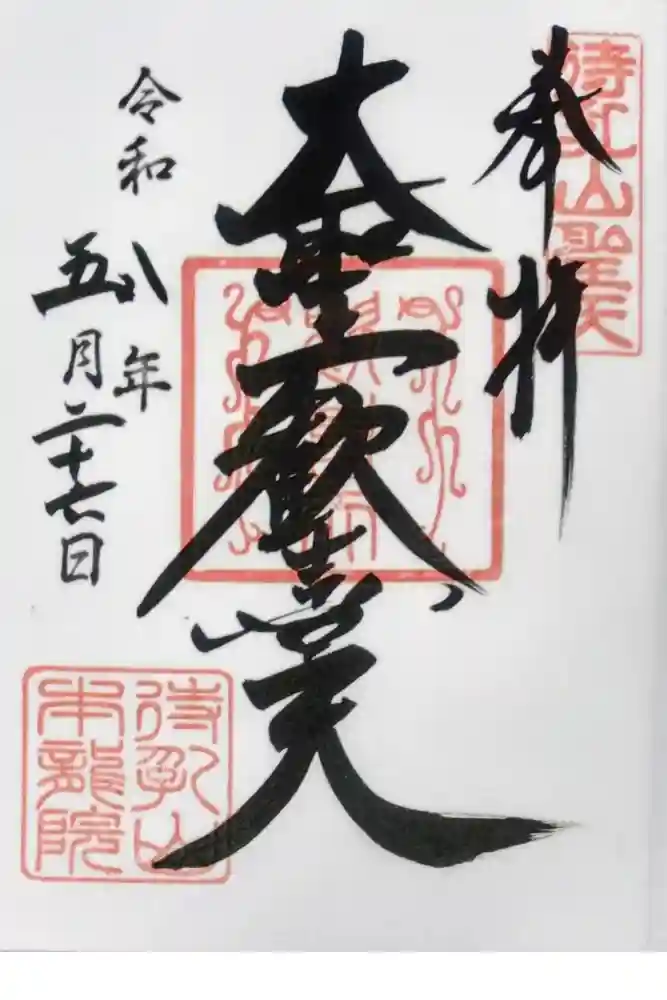 奉拝
待乳山聖天
大聖歓喜天
令和八年
五月二十六日
待乳山
本龍院